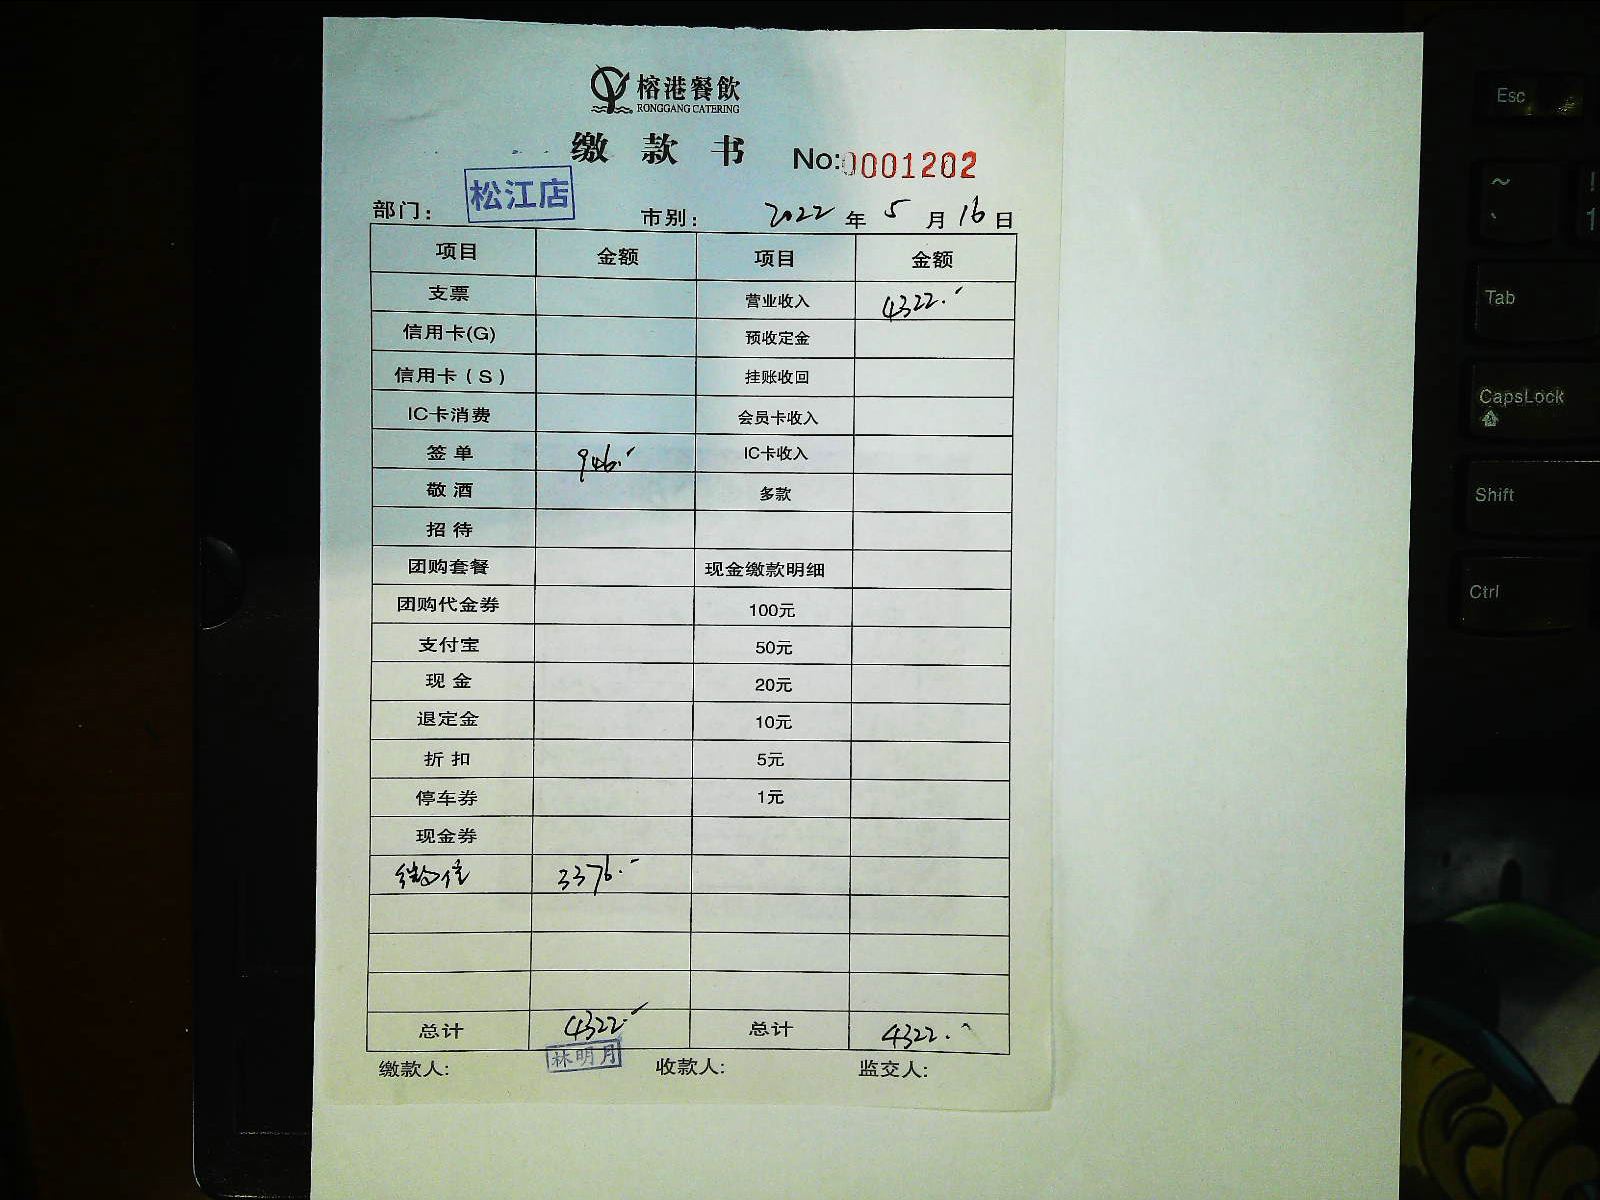 榕港餐飲
RONGGANG CATERING
缴 款 书 No:0001202
部门: 松江店 市别: 2022 年 5 月 16 日
项目 金额 项目 金额
支票 营业收入 4322.-
信用卡(G) 预收定金
信用卡(S) 挂账收回
IC卡消费 会员卡收入
签单 946.- IC卡收入
敬酒 多款
招待
团购套餐 现金缴款明细
团购代金券 100元
支付宝 50元
现金 20元
退定金 10元
折扣 5元
停车券 1元
现金券
微信 3376.-
总计 4322.- 总计 4322.-
缴款人: 林明月 收款人: 监交人:
Esc
~
`
!
1
Tab
CapsLock
Shift
Ctrl